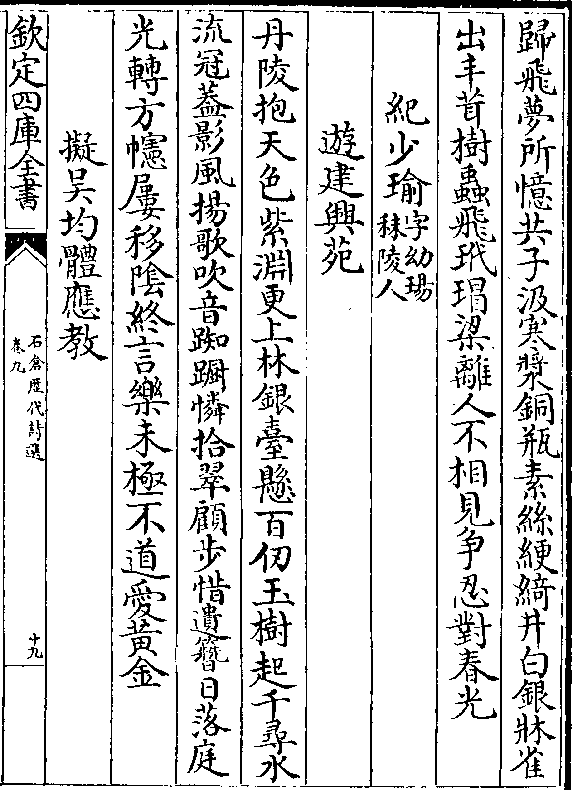 歸飛夢所憶共子汲寒漿銅瓶素絲綆綺井白銀牀雀
出丰茸樹蟲飛玳瑁梁離人不相見爭忍對春光
紀少瑜字幼瑒秣陵人
遊建興苑
丹陵抱天色紫淵更上林銀臺懸百仞玉樹起千尋水
流冠蓋影風揚歌吹音踟蹰憐拾翠顧步惜遺簪日落庭
光轉方幰屢移陰終言樂未極不道愛黃金
擬吴均體應教
欽定四庫全書
石倉歴代詩選
卷九
十九